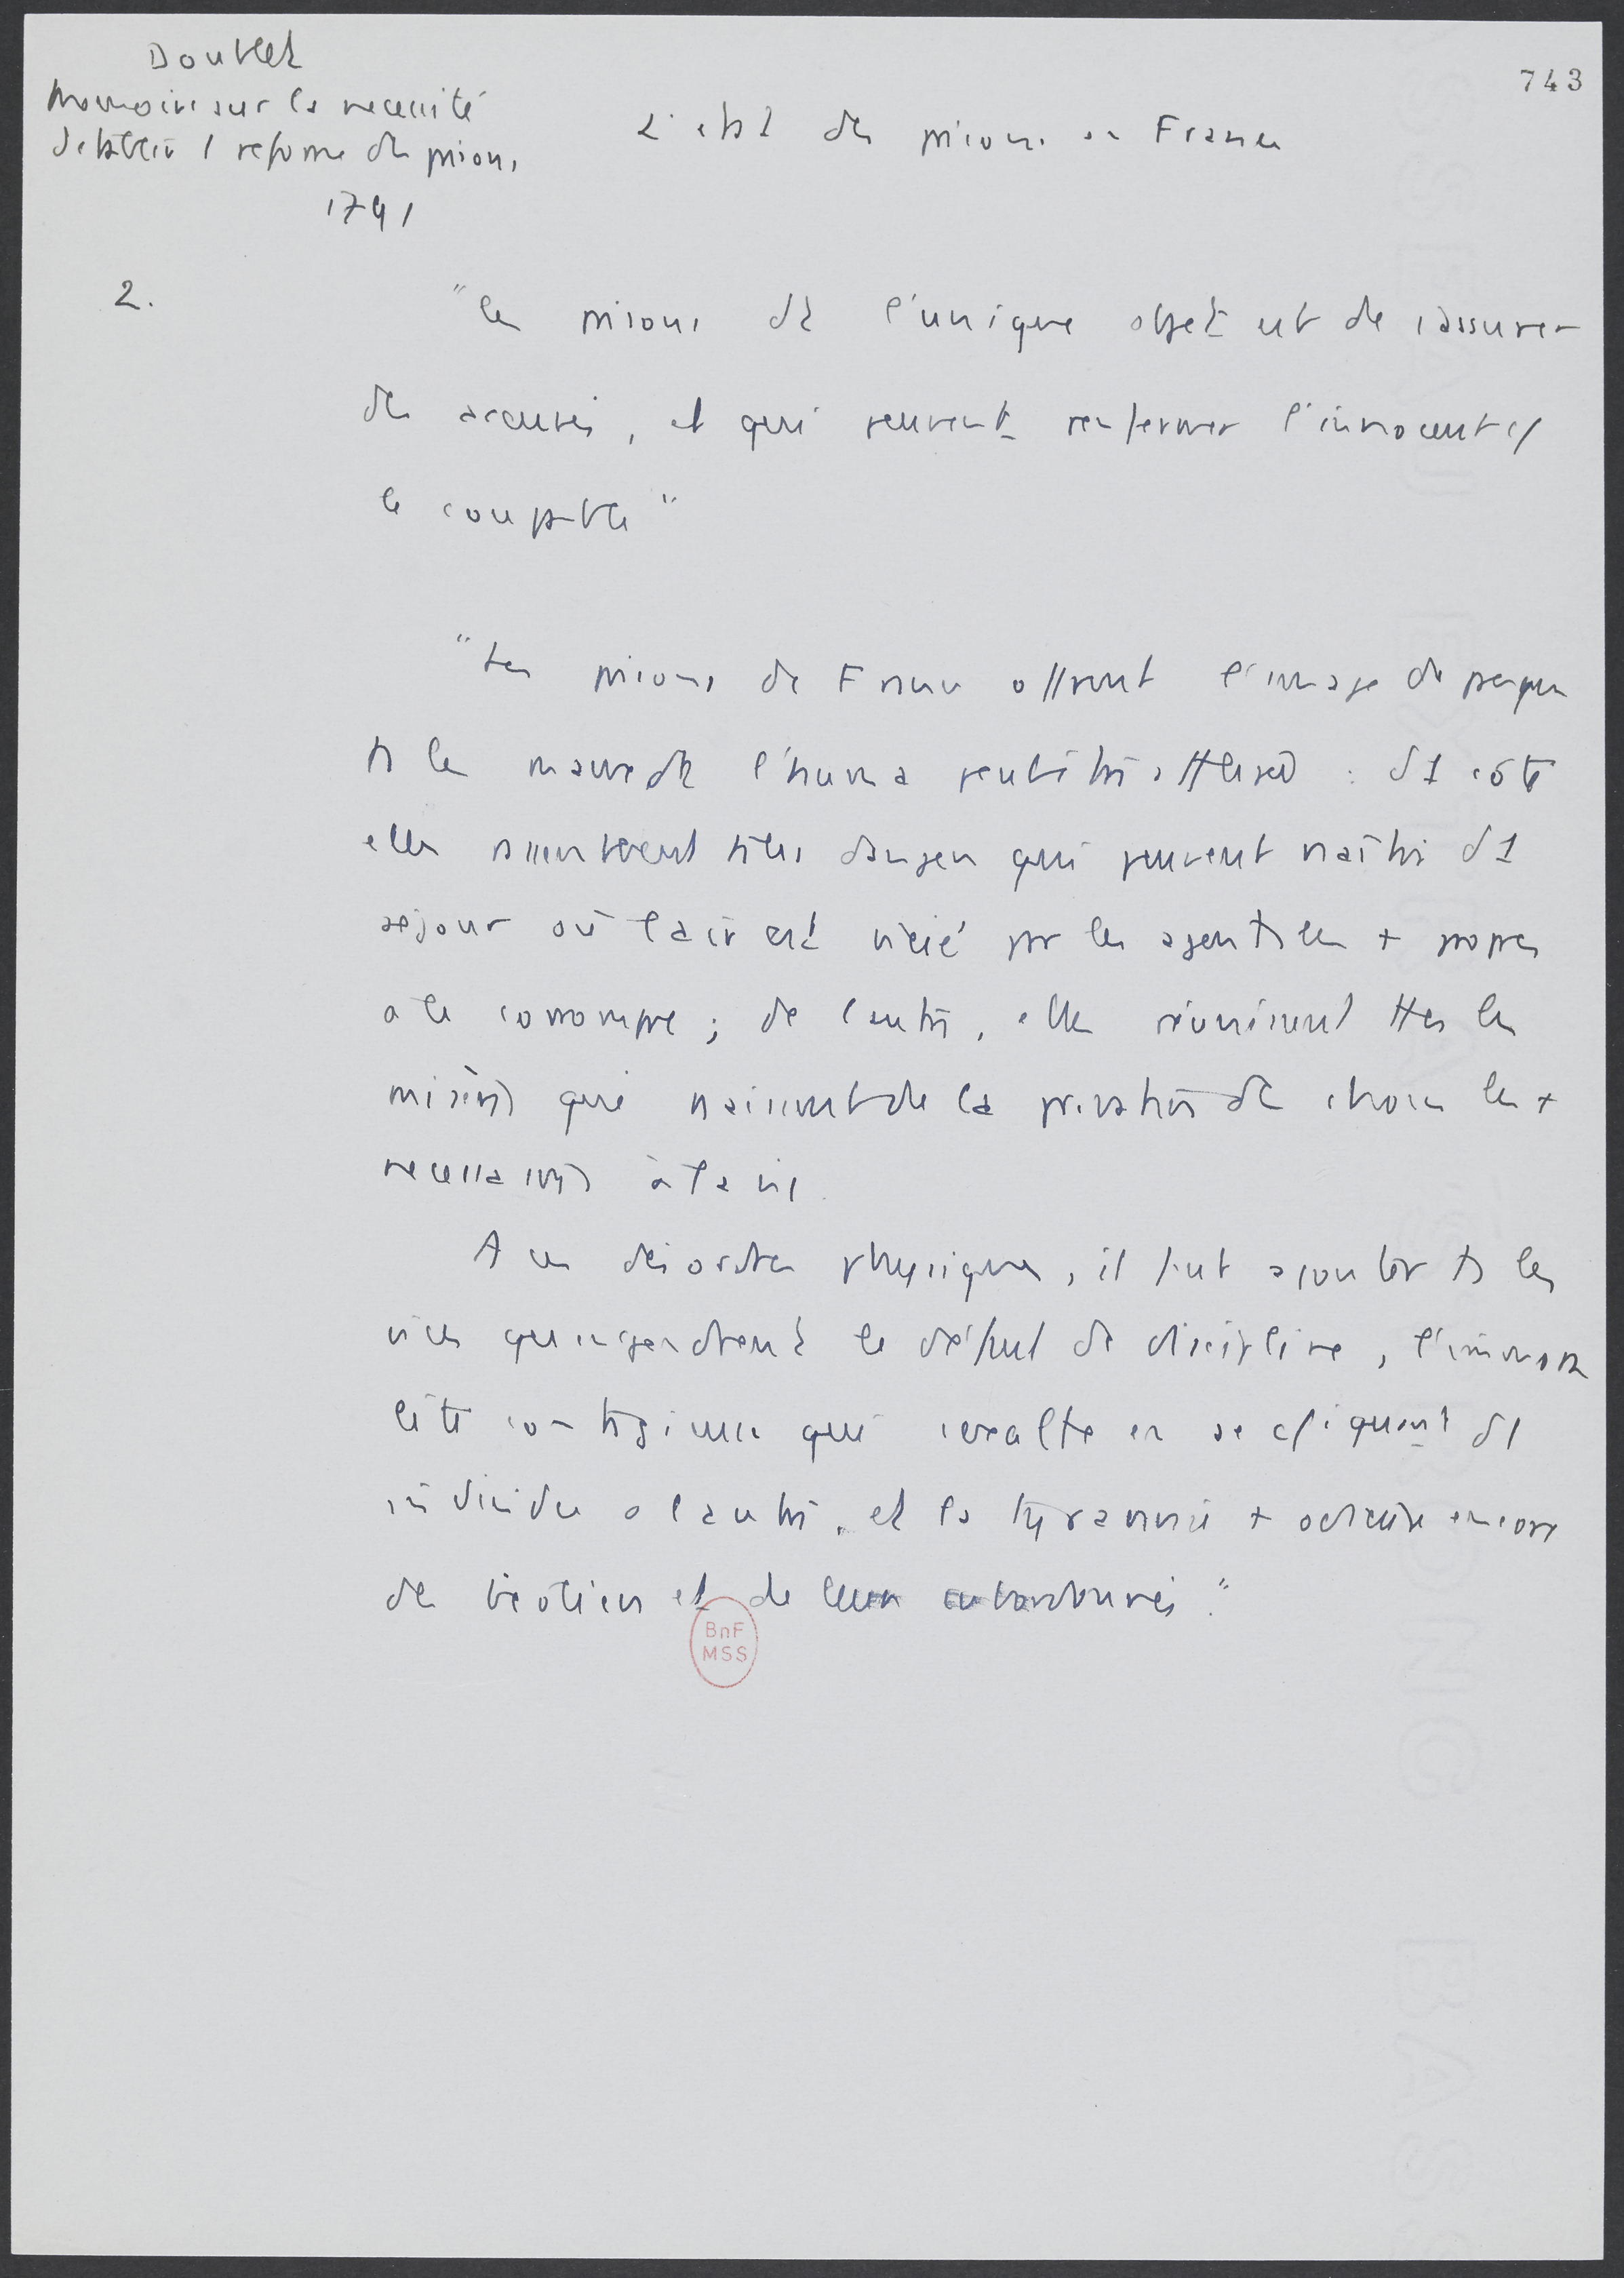 743
Doublet
Memoire sur la necessité
d'etablir 1 reforme des prisons
1791
L'etat des prisons en France
2.
"les prisons dt l'unique objet est de s'assurer
des accusés, et qui peuvent renfermer l'innocent et
le coupable"
"Les prisons de France offrent l'image de presque
ts les maux dt l'huma peut être affligée : d1 côté
elles rassemblent ts les dangers qui peuvent naître d1
séjour où l'air est vicié par les agents les + propres
à le corrompre ; de l'autre, elles réunissent ttes les
misères qui naissent de la privation des choses les +
necessaires à la vie.
A ces désordres physiques, il faut ajouter ts les
vices qu'engendrent le défaut de discipline, l'immora
lité contagieuse qui s'exalte en se cpiquant d1
individu à l'autre, et la tyrannie + odieuse encore
des geôliers et de leurs subordonnés."
BnF
MSS